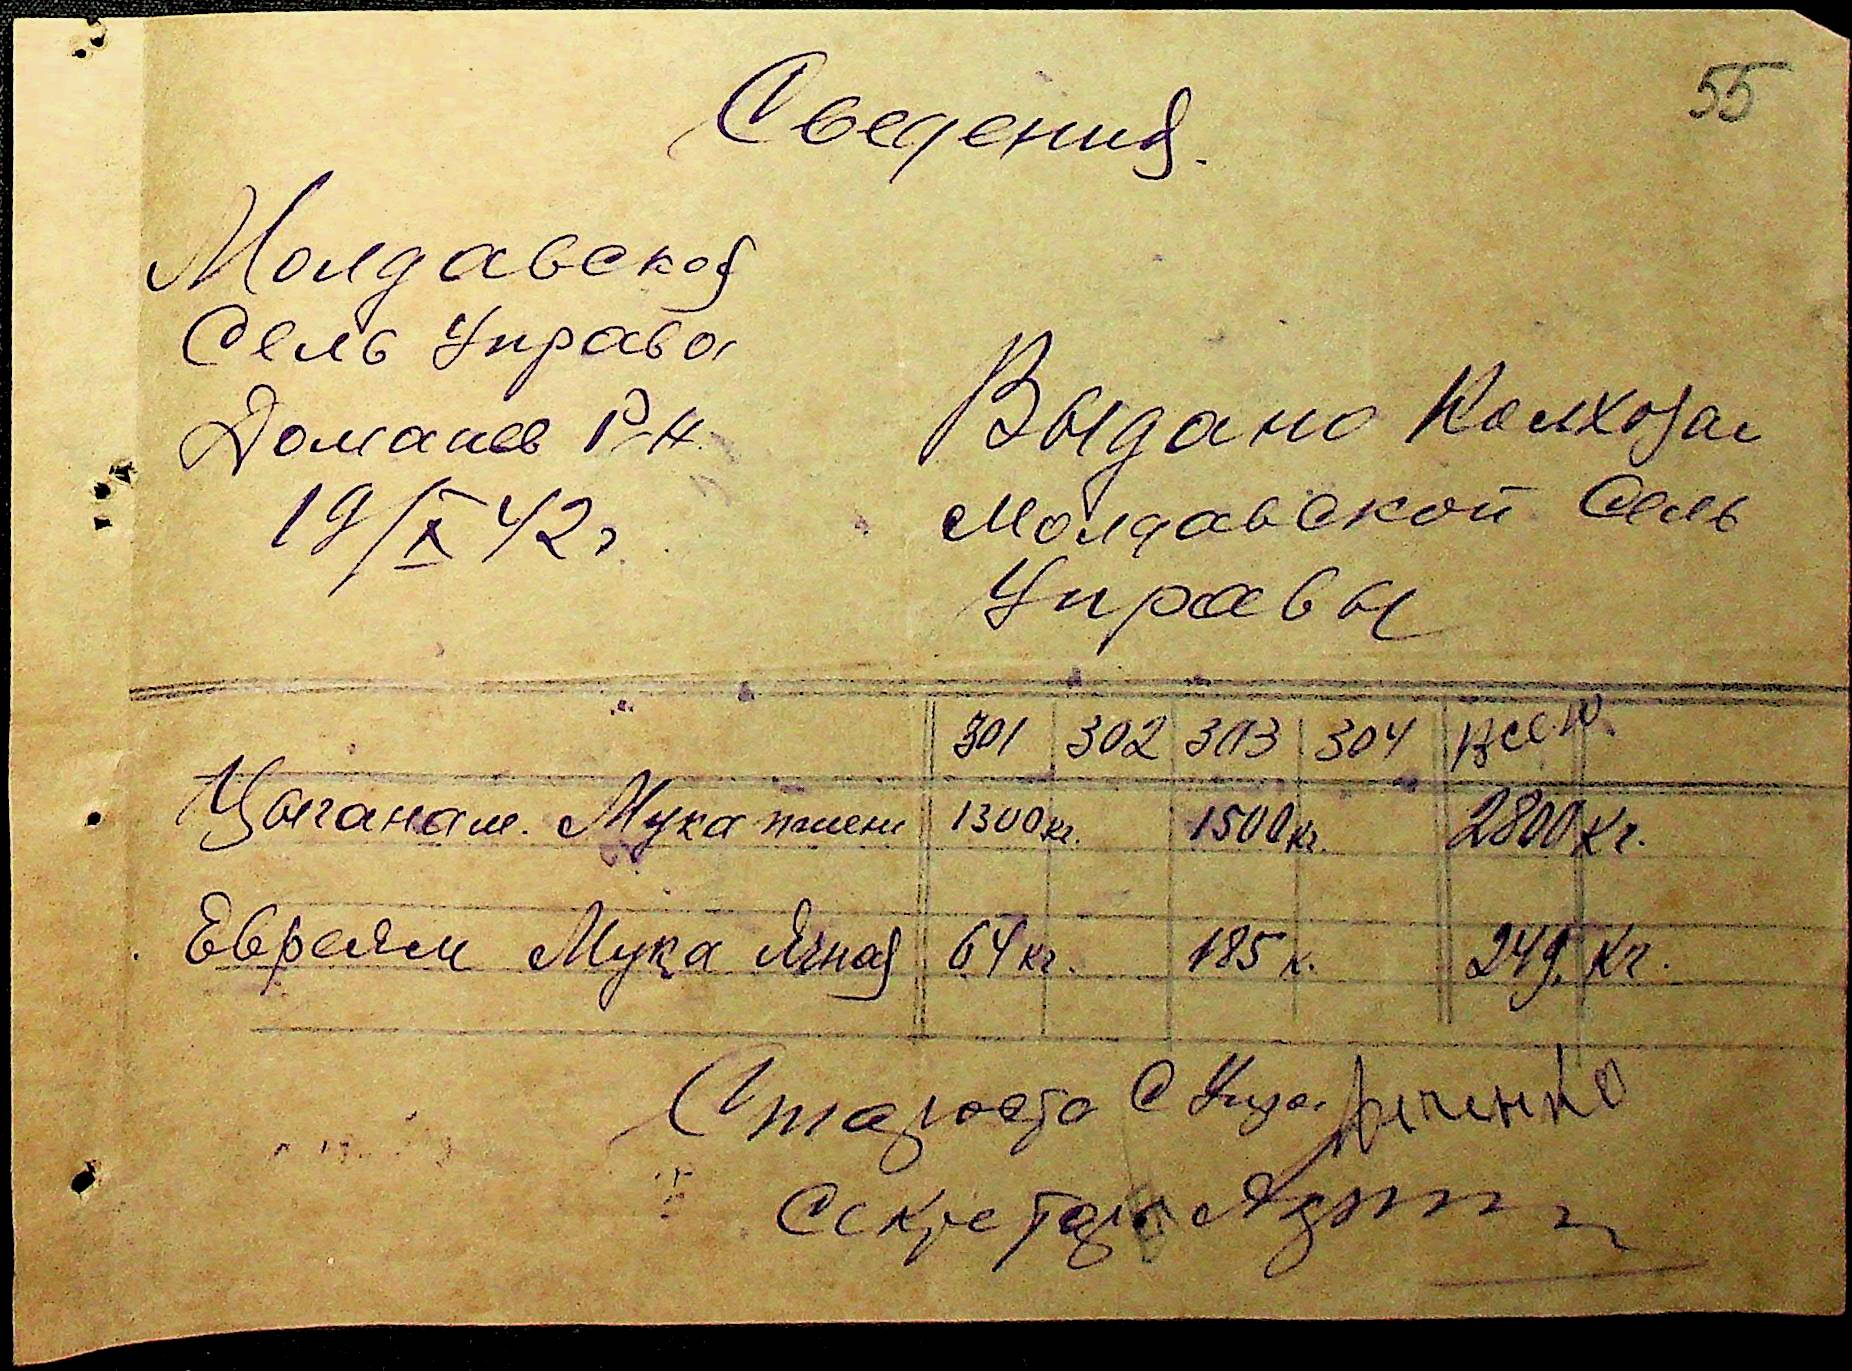 55
Сведения.
Молдавская
Сель Управа
Доманев Р-Н.
19/X 42 г
Выдано Колхозам
Молдавской Сель
Управы
301 302 303 304 Всего.
Цыганам. Мука пшен 1300 кг. 1500 кг. 2800 кг.
Евреям Мука Ячная 64 кг. 185 к. 249 кг.
Староста С Упра.
Секретарь